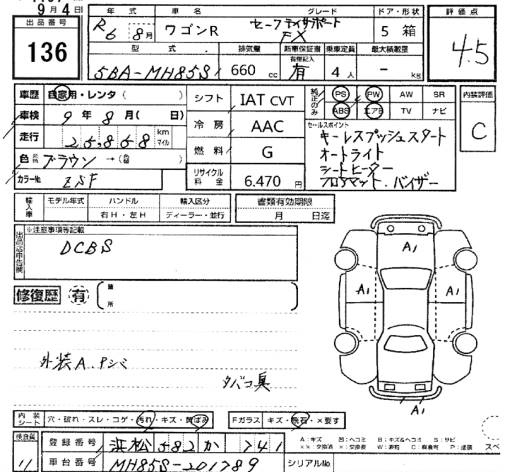 9月4日
出品番号
136
年式 車名 グレード ドア・形状
R6 8月 ワゴンR セーフティサポート FX 5 箱
評価点
4.5
型式 排気量 新車保証書 乗車定員 最大積載量
5BA-MH85S 660 cc 有 4人 - kg
車歴 自家用・レンタ( )
車検 9年8月( 日)
走行 25,868 km マイル
色 ブラウン →( )
カラーNo. ZSF
シフト IAT CVT
冷房 AAC
燃料 G
リサイクル料金 6.470円
純正のみ
PS PW AW SR
ABS エアB TV ナビ
セールスポイント
キーレスプッシュスタート
オートライト
シートヒーター
フロアマット、バイザー
内装評価
C
輸入車 モデル年式 ハンドル 輸入区分
年 右H・左H ディーラー・並行
書類有効期限
月 日迄
※注意事項等記載
DCBS
修復歴 有
箇所
外装A.Pシミ
タバコ臭
A1
A1
A1
A1
内装シート 穴・破れ・スレ・コゲ・汚れ・キズ・黄ばみ
Fガラス キズ・飛石・×要す
検査員
11
登録番号 浜松582か741
車台番号 MH85S-201789
シリアルNo